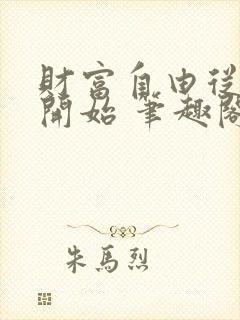 財富自由從
開始 筆趣閣
朱馬烈